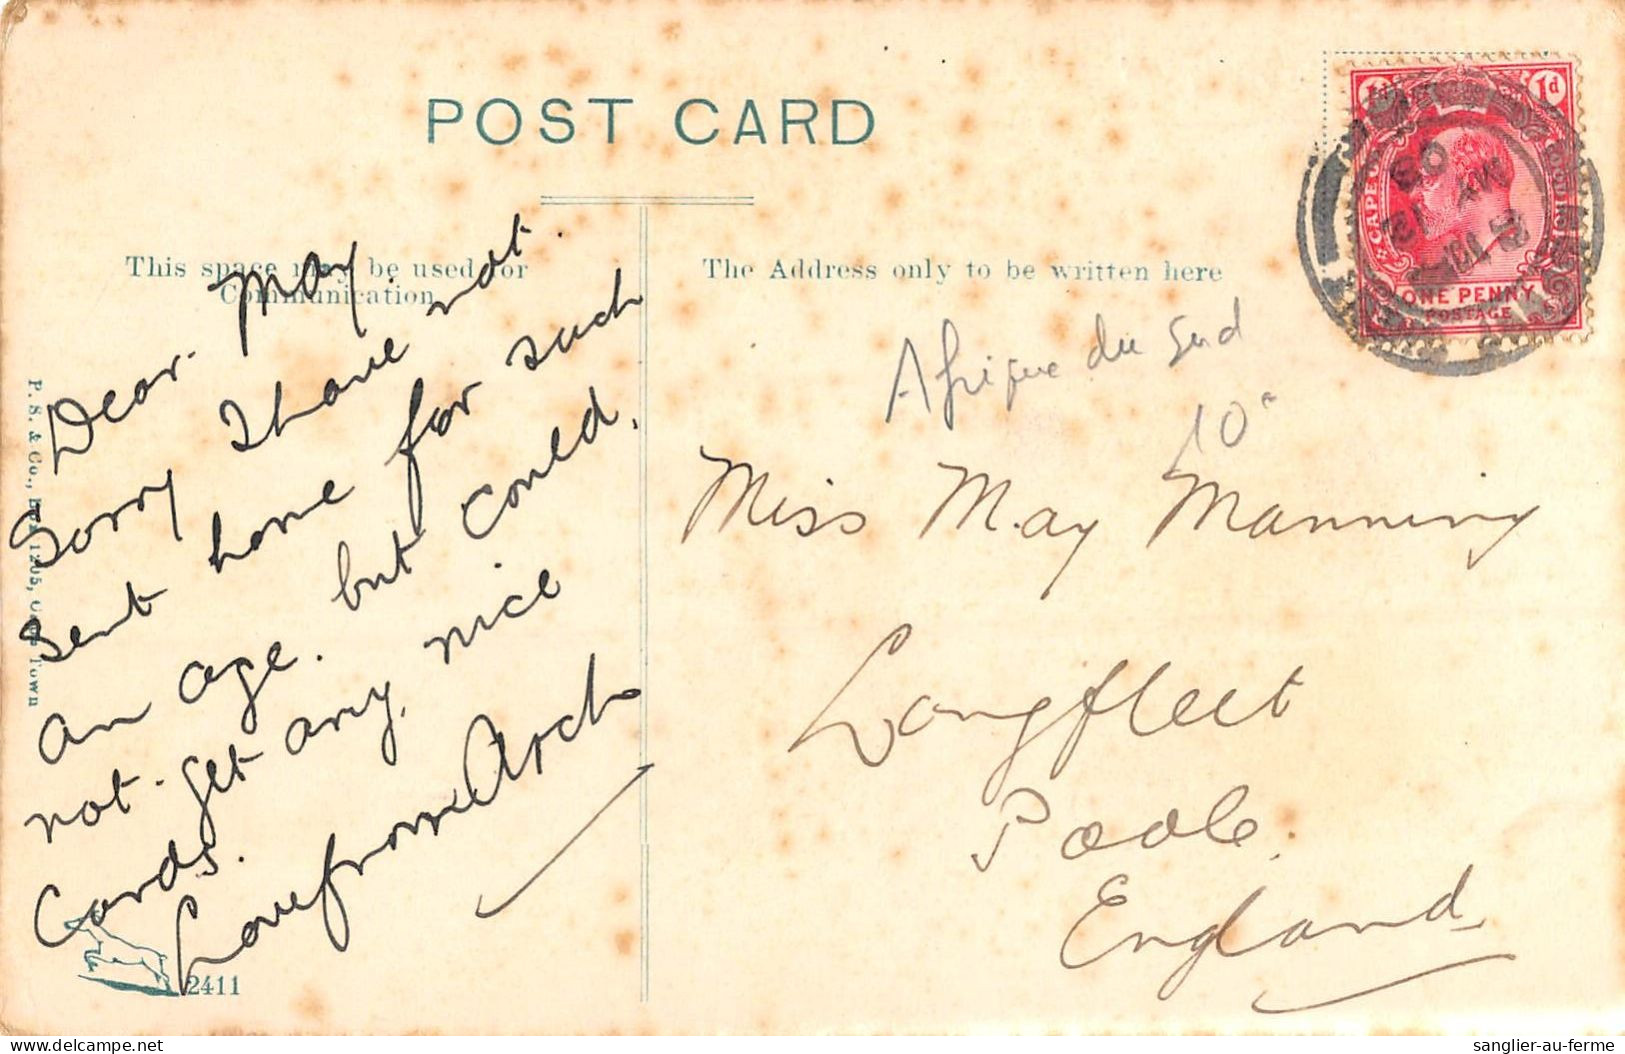 POST CARD
This space may be used for
Communication
The Address only to be written here
Dear May
Sorry I have not.
sent home for such
an age. but could.
not. get any. nice
Cards.
Love from Arch
P. S. & Co., Box 1205, Cape Town
2411
Afrique du Sud
10
Miss May Manning
Longfleet
Poole.
England
1d
ONE PENNY
POSTAGE
MY 12
09
sanglier-au-ferme